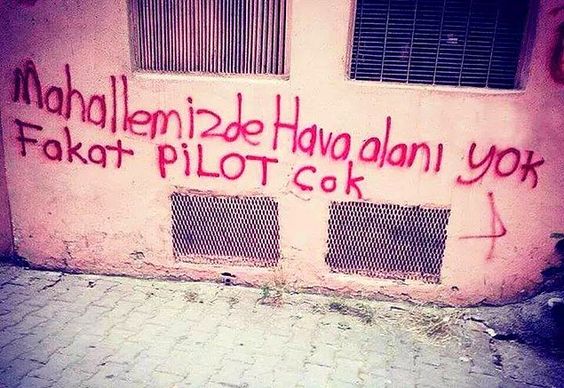 Mahallemizde Hava alanı yok
Fakat PiLOT Cok